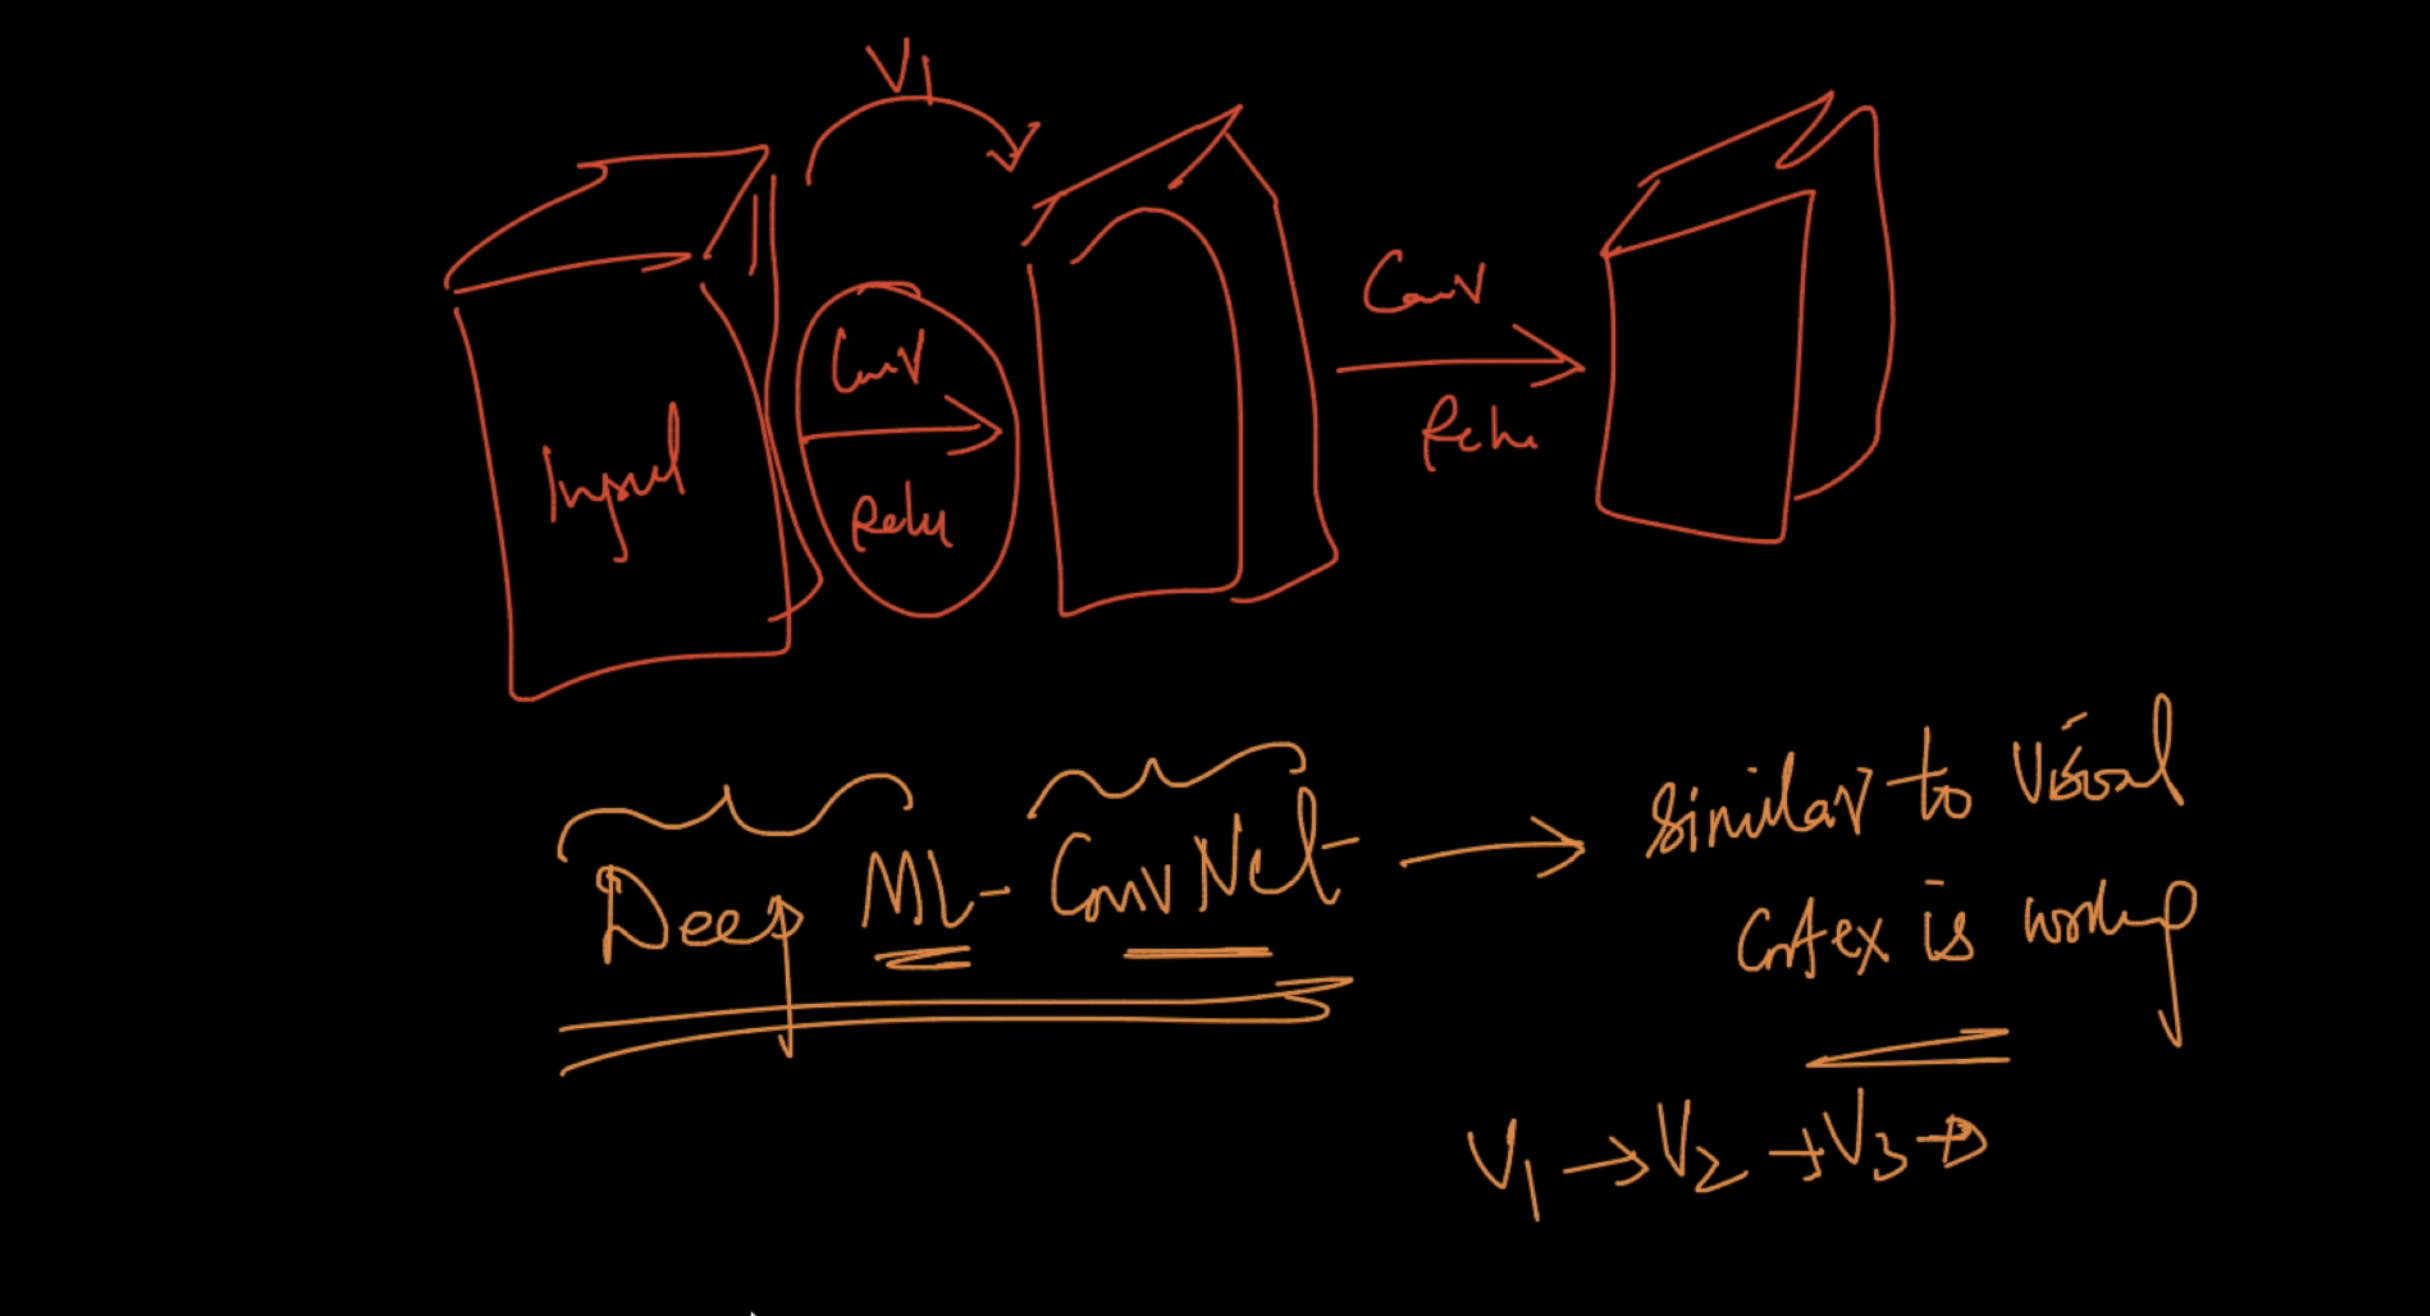 V1
Conv
Conv
Relu
Input
Relu
Deep ML - ConvNet → similar to Visual
Cortex is working
V1 → V2 → V3 →